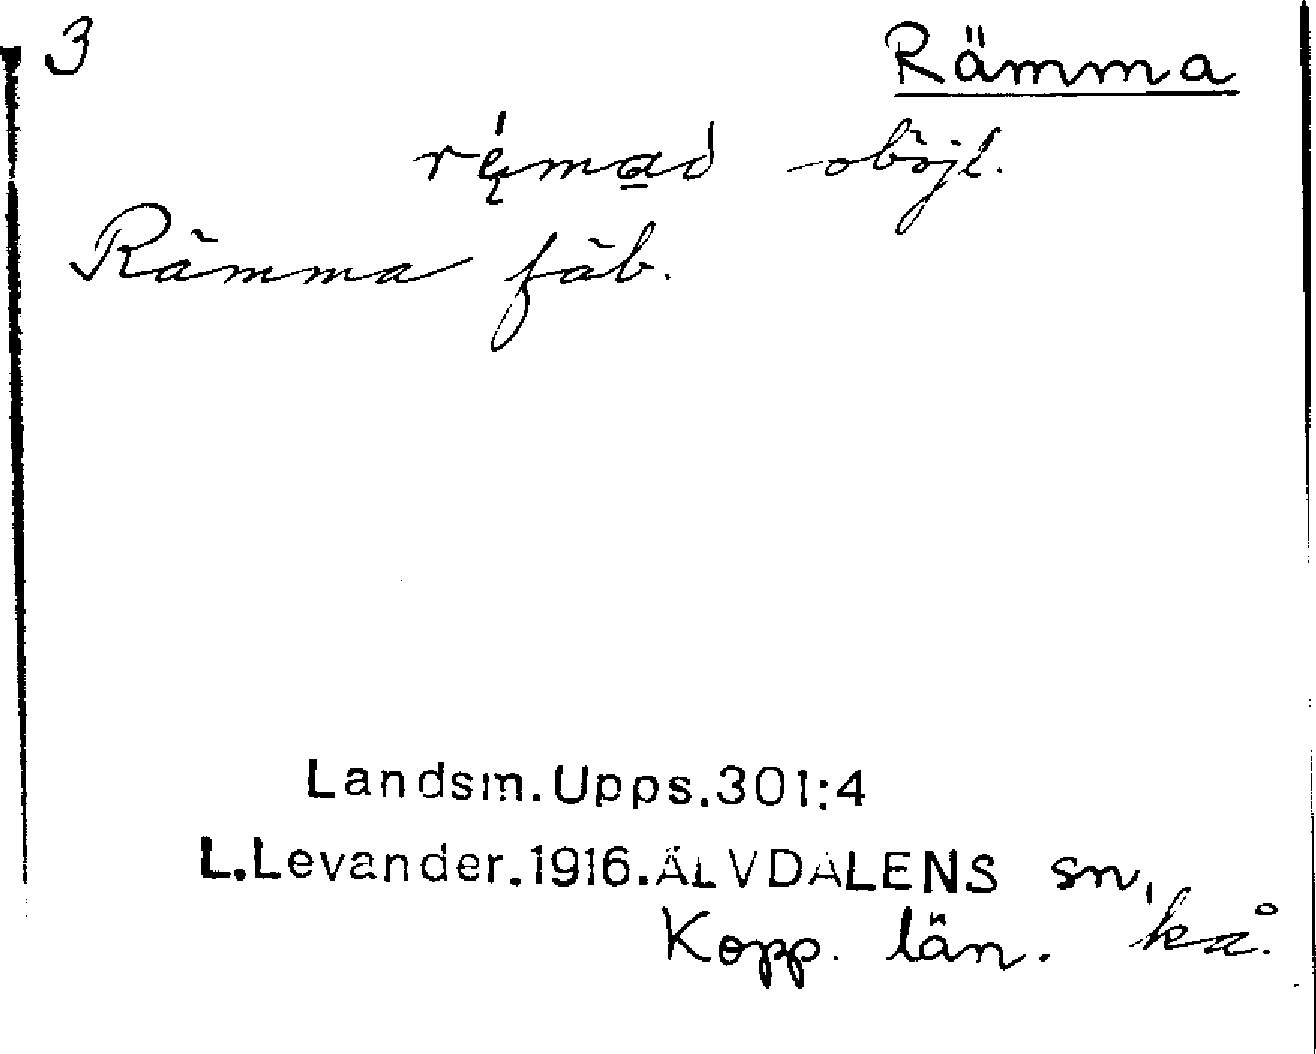 3 Rämma
rę́ma̲d oböjl.
Rämma fäb.
Landsm.Upps.301:4
L.Levander.1916.ÄLVDALENS sn,
Kopp. län. kå.